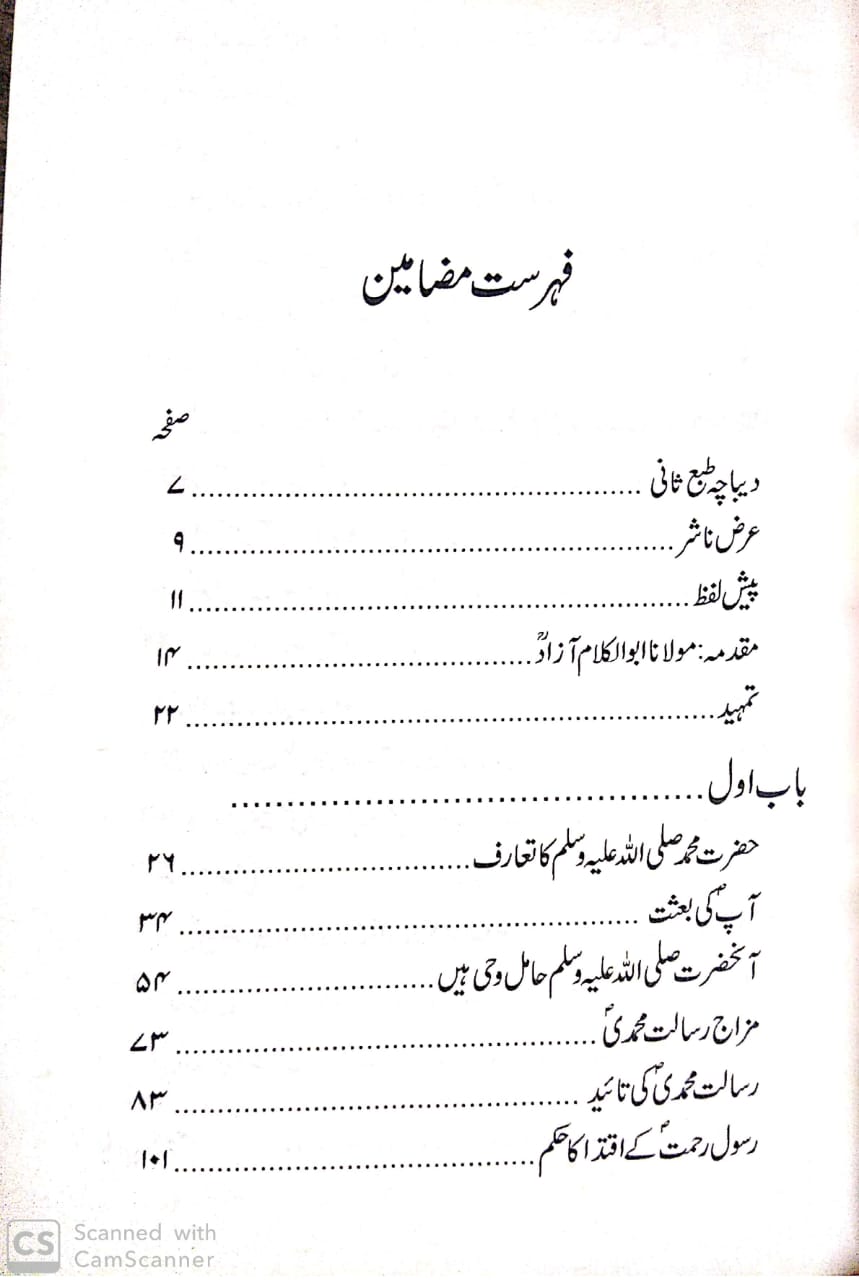 فہرست مضامین
صفحہ
دیباچہ طبع ثانی ........ ۷
عرض ناشر ........ ۹
پیش لفظ ........ ۱۱
مقدمہ: مولانا ابوالکلام آزادؒ ........ ۱۴
تمہید ........ ۲۲
باب اول ........
حضرت محمد صلی اللہ علیہ وسلم کا تعارف ........ ۲۶
آپؐ کی بعثت ........ ۳۴
آنحضرت صلی اللہ علیہ وسلم حامل وحی ہیں ........ ۵۴
مزاج رسالت محمدیؐ ........ ۷۳
رسالت محمدیؐ کی تائید ........ ۸۳
رسول رحمتؐ کے اقتدا کا حکم ........ ۱۰۱
CS Scanned with
CamScanner